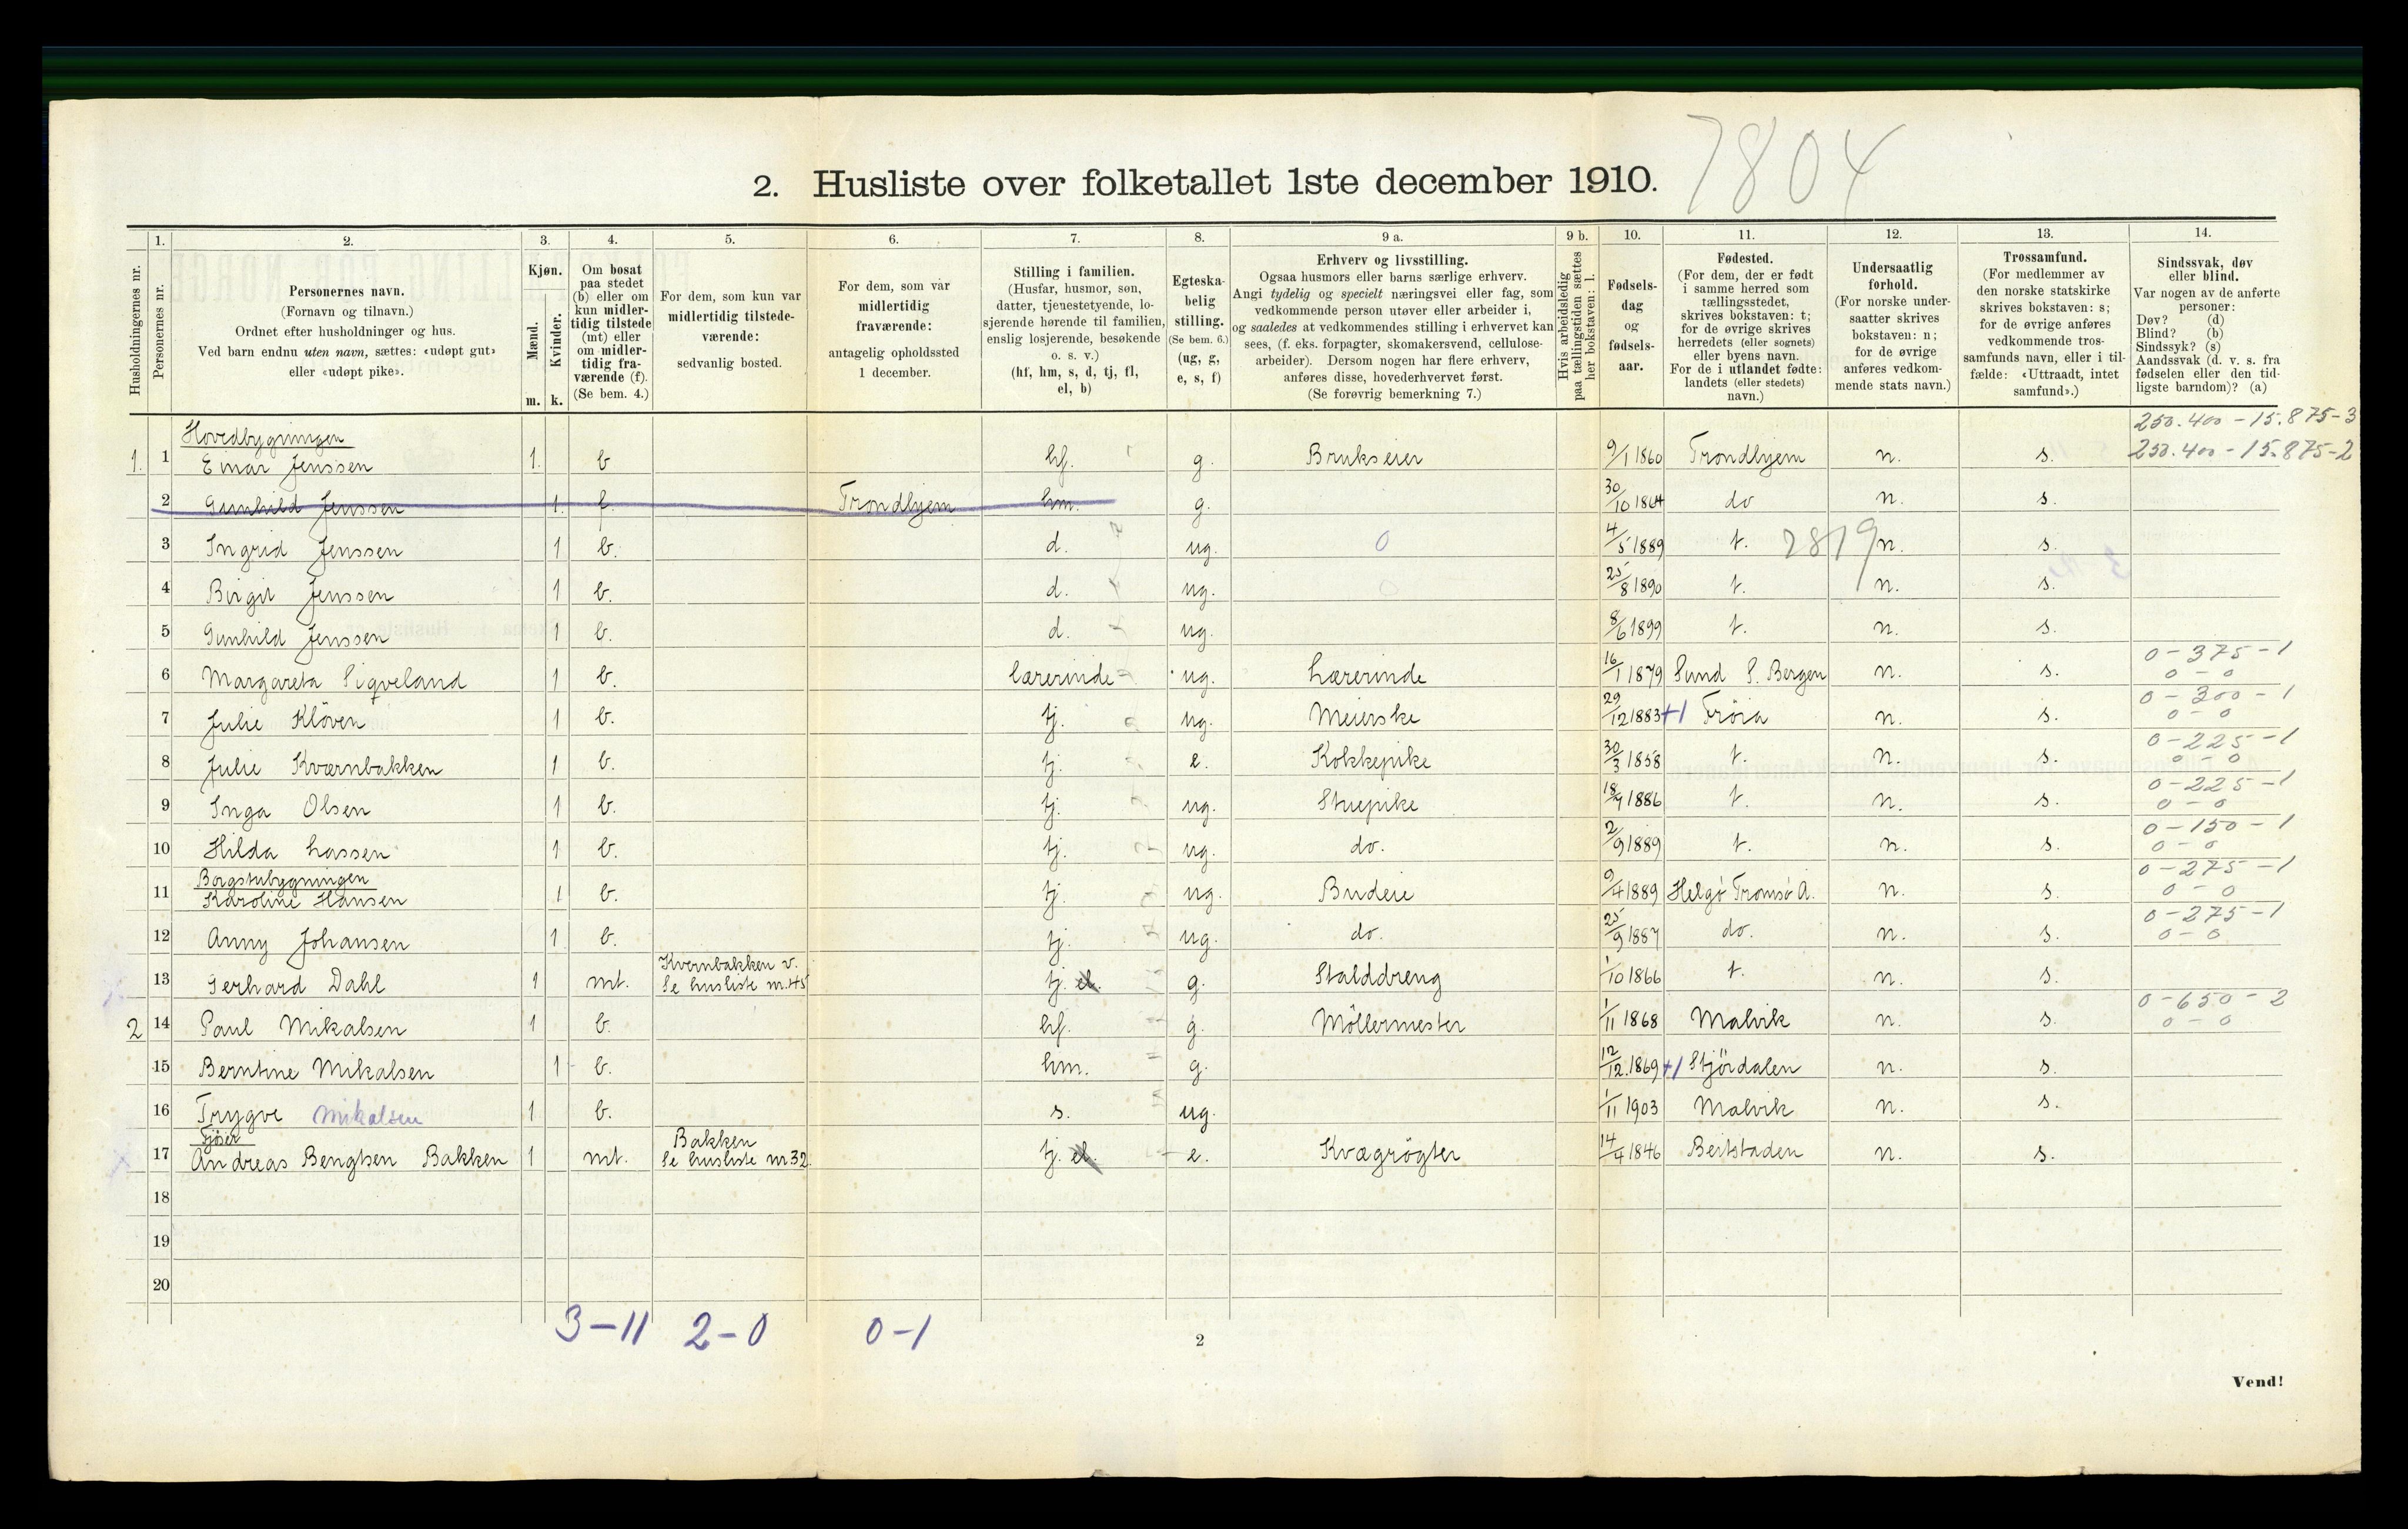 7804
2. Husliste over folketallet 1ste december 1910.
Husholdningernes nr.
1.
Personernes nr.
2.
Personernes navn.
(Fornavn og tilnavn.)
Ordnet efter husholdninger og hus.
Ved barn endnu uten navn, sættes: «udøpt gut»
eller «udøpt pike».
3.
Kjøn.
Mænd.
Kvinder.
m. k.
4.
Om bosat
paa stedet
(b) eller om
kun midler-
tidig tilstede
(mt) eller
om midler-
tidig fra-
værende (f).
(Se bem. 4.)
5.
For dem, som kun var
midlertidig tilstede-
værende:
sedvanlig bosted.
6.
For dem, som var
midlertidig
fraværende:
antagelig opholdssted
1 december.
7.
Stilling i familien.
(Husfar, husmor, søn,
datter, tjenestetyende, lo-
sjerende hørende til familien,
enslig losjerende, besøkende
o. s. v.)
(hf, hm, s, d, tj, fl,
el, b)
8.
Egteska-
belig
stilling.
(Se bem. 6.)
(ug, g,
e, s, f)
9 a.
Erhverv og livsstilling.
Ogsaa husmors eller barns særlige erhverv.
Angi tydelig og specielt næringsvei eller fag, som
vedkommende person utøver eller arbeider i,
og saaledes at vedkommendes stilling i erhvervet kan
sees, (f. eks. forpagter, skomakersvend, cellulose-
arbeider). Dersom nogen har flere erhverv,
anføres disse, hovederhvervet først.
(Se forøvrig bemerkning 7.)
9 b.
Hvis arbeidsledig
paa tællingstiden sættes
her bokstaven: l.
10.
Fødsels-
dag
og
fødsels-
aar.
11.
Fødested.
(For dem, der er født
i samme herred som
tællingsstedet,
skrives bokstaven: t;
for de øvrige skrives
herredets (eller sognets)
eller byens navn.
For de i utlandet fødte:
landets (eller stedets)
navn.)
12.
Undersaatlig
forhold.
(For norske under-
saatter skrives
bokstaven: n;
for de øvrige
anføres vedkom-
mende stats navn.)
13.
Trossamfund.
(For medlemmer av
den norske statskirke
skrives bokstaven: s;
for de øvrige anføres
vedkommende tros-
samfunds navn, eller i til-
fælde: «Uttraadt, intet
samfund».)
14.
Sindssvak, døv
eller blind.
Var nogen av de anførte
personer:
Døv? (d)
Blind? (b)
Sindssyk? (s)
Aandssvak (d. v. s. fra
fødselen eller den tid-
ligste barndom)? (a)
Hovedbygningen 250.400 - 15.875-3
1. 1 Einar Jenssen 1. b hf. g. Brukseier 9/1 1860 Trondhjem n. s. 250.400 - 15.875-2
2 Gunhild Jenssen 1. f. Trondhjem hm. g. 30/10 1864 do n. s.
3 Ingrid Jenssen 1 b. d. ug. 0 4/5 1889 t. 2819 n. s.
4 Birgit Jenssen 1 b. d. ug. 0 25/8 1890 t. n. s.
5 Gunhild Jenssen 1 b. d. ug. 8/6 1899 t. n. s.
0-375-1
6 Margareta Sigveland 1 b. lærerinde ug. Lærerinde 16/1 1879 Sund S. Bergen n. s. 0-0
0-300-1
7 Julie Klöven 1 b. tj. ug. Meierske 29/12 1883 +1 Fröia n. s. 0-0
0-225-1
8 Julie Kværnbakken 1 b. tj. e. Kokkepike 30/3 1858 t. n. s. 0-0
0-225-1
9 Inga Olsen 1 b. tj. ug. Stuepike 1886 t. n. s. 0-0
0-150-1
10 Hilda Lassen 1 b. tj. ug. do. 2/9 1889 t. n. s. 0-0
Borgstubygningen 0-275-1
11 Karoline Hansen 1 b. tj. ug. Budeie 9/4 1889 Helgö Tromsö A. n. s. 0-0
0-275-1
12 Anny Johansen 1 b. tj. ug. do. 25/9 1887 do. n. s. 0-0
Kvernbakken v.
13 Gerhard Dahl 1 mt. Se husliste nr. 45 tj. el. g. Stalddreng 1/10 1866 t. n. s.
0-650-2
2 14 Paul Mikalsen 1 b. hf. g. Möllermester 1/11 1868 Malvik n. s. 0-0
15 Berntine Mikalsen 1 b. hm. g. 12/12.1869 +1 Stjördalen n. s.
16 Trygve Mikalsen 1 b. s. ug. 1/11 1903 Malvik n. s.
Fjöser Bakken
17 Andreas Bengtsen Bakken 1 mt. Se husliste nr 32. tj. el. e. Kvægrögter 14/4 1846 Beitstaden n. s.
18
19
20
3-11 2-0 0-1
2
Vend!